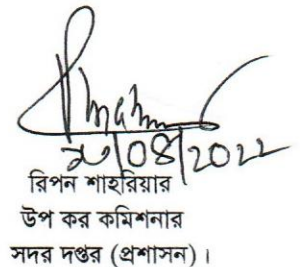 /08/2022
রিপন শাহরিয়ার
উপ কর কমিশনার
সদর দপ্তর (প্রশাসন)।